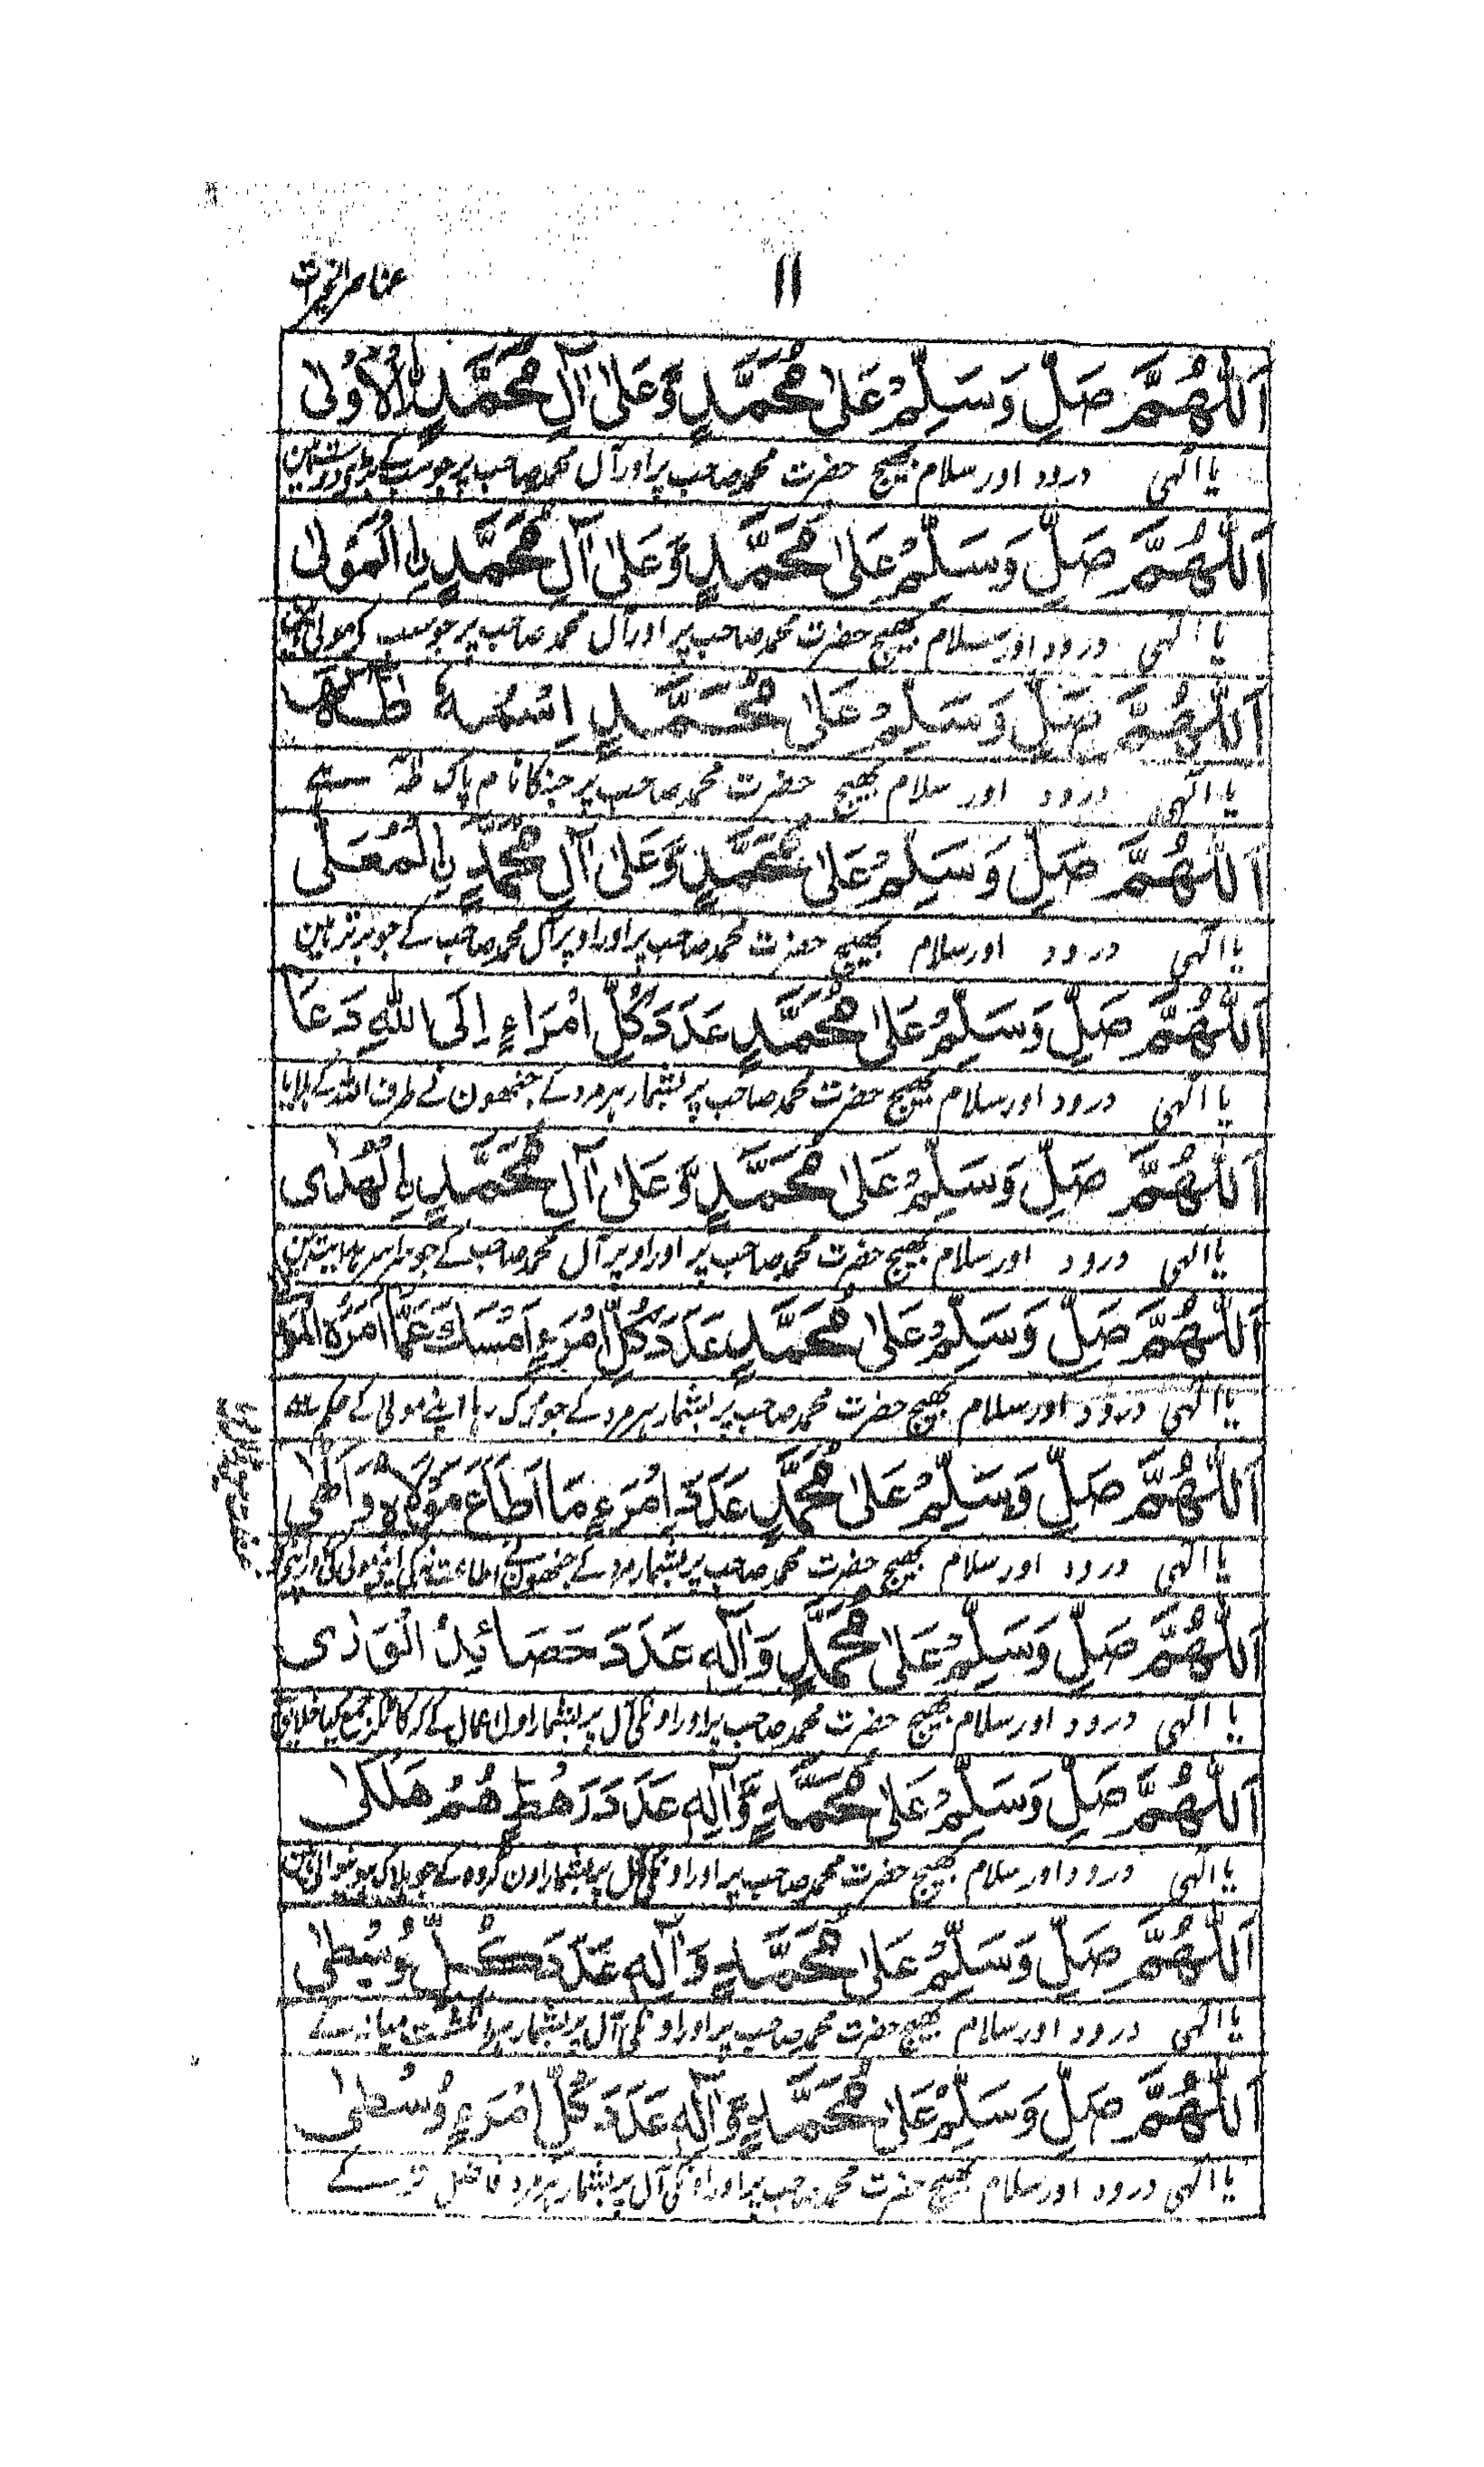 عناصر الخیرات
۱۱
اَللّٰهُمَّ صَلِّ وَسَلِّمْ عَلٰی مُحَمَّدٍ وَّعَلٰی اٰلِ مُحَمَّدِنِ الْاُوْلٰی
یا الٰہی درود اور سلام بھیج حضرت محمد صاحب پر اور آل محمد صاحب پر جو سب کے
اَللّٰهُمَّ صَلِّ وَسَلِّمْ عَلٰی مُحَمَّدٍ وَّعَلٰی اٰلِ مُحَمَّدِنِ الْمَوْلٰی
یا الٰہی درود اور سلام بھیج حضرت محمد صاحب پر اور آل محمد صاحب پر جو سب کی مولیٰ ہین
اَللّٰهُمَّ صَلِّ وَسَلِّمْ عَلٰی مُحَمَّدٍ اِسْمُهٗ طٰهٰ
یا الٰہی درود اور سلام بھیج حضرت محمد صاحب پر جنکا نام پاک طٰہٰ ہے
اَللّٰهُمَّ صَلِّ وَسَلِّمْ عَلٰی مُحَمَّدٍ وَّعَلٰی اٰلِ مُحَمَّدِنِ الْمُعَلّٰی
یا الٰہی درود اور سلام بھیج حضرت محمد صاحب پر اور اوپر آل محمد صاحب کے جو برتر ہین
اَللّٰهُمَّ صَلِّ وَسَلِّمْ عَلٰی مُحَمَّدٍ عَدَدَ كُلِّ امْرَاءٍ اِلَی اللّٰهِ دَعَا
یا الٰہی درود اور سلام بھیج حضرت محمد صاحب پر بشمار ہر مرد کے جنھون نے طرف اللہ کے بلایا
اَللّٰهُمَّ صَلِّ وَسَلِّمْ عَلٰی مُحَمَّدٍ وَّعَلٰی اٰلِ مُحَمَّدِنِ الْهُدٰی
یا الٰہی درود اور سلام بھیج حضرت محمد صاحب پر اور اوپر آل محمد صاحب کے جو سراسر ہدایت ہین
اَللّٰهُمَّ صَلِّ وَسَلِّمْ عَلٰی مُحَمَّدٍ عَدَدَ كُلِّ امْرَءٍ اَمْسَكَ عَمَّا اَمَرَهُ
یا الٰہی درود اور سلام بھیج حضرت محمد صاحب پر بشمار ہر مرد کے جو رک رہا اپنے مولیٰ کے حکم سے
اَللّٰهُمَّ صَلِّ وَسَلِّمْ عَلٰی مُحَمَّدٍ عَدَدَ امْرَءٍ مَا اَطَاعَ مَوْلَاهُ وَ
یا الٰہی درود اور سلام بھیج حضرت محمد صاحب پر بشمار مرد کے جنھون نے اطاعت نہ کی اپنے مولیٰ کی
اَللّٰهُمَّ صَلِّ وَسَلِّمْ عَلٰی مُحَمَّدٍ وَاٰلِهٖ عَدَدَ حَصَائِدْ
یا الٰہی درود اور سلام بھیج حضرت محمد صاحب پر اور اونکی آل پر بشمار
اَللّٰهُمَّ صَلِّ وَسَلِّمْ عَلٰی مُحَمَّدٍ وَّاٰلِهٖ عَدَدَ رَهْطٍ هُمْ هَلْكٰی
یا الٰہی درود اور سلام بھیج حضرت محمد صاحب پر اور اونکی آل پر بشمار اون گروہ کے جو ہلاک ہونیوالی ہین
اَللّٰهُمَّ صَلِّ وَسَلِّمْ عَلٰی مُحَمَّدٍ وَاٰلِهٖ عَدَدَ كُلِّ وُسْطٰی
یا الٰہی درود اور سلام بھیج حضرت محمد صاحب پر اور اونکی آل پر بشمار ہر انگشت میانہ کے
اَللّٰهُمَّ صَلِّ وَسَلِّمْ عَلٰی مُحَمَّدٍ وَّاٰلِهٖ عَدَدَ كُلِّ امْرَءٍ وُسْطٰی
یا الٰہی درود اور سلام بھیج حضرت محمد صاحب پر اور اونکی آل پر بشمار ہر مرد فاضل تر کے